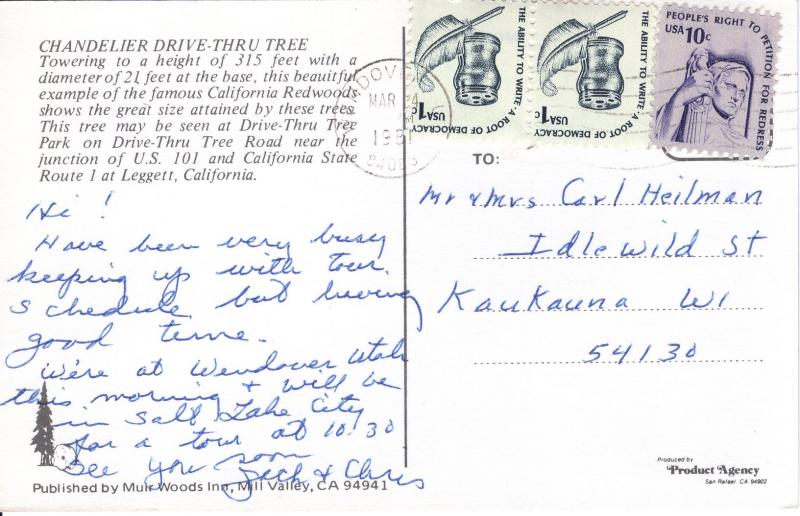 CHANDELIER DRIVE-THRU TREE
Towering to a height of 315 feet with a
diameter of 21 feet at the base, this beautiful
example of the famous California Redwoods
shows the great size attained by these trees.
This tree may be seen at Drive-Thru Tree
Park on Drive-Thru Tree Road near the
junction of U.S. 101 and California State
Route 1 at Leggett, California.
Hi!
Have been very busy
keeping up with tour
schedule but having
good time.
We're at Wendover Utah
this morning & will be
in Salt Lake City
for a tour at 10:30
See you soon
Jack & Chris
Published by Muir Woods Inn, Mill Valley, CA 94941
THE ABILITY TO WRITE·A ROOT OF DEMOCRACY
USA 1c
THE ABILITY TO WRITE·A ROOT OF DEMOCRACY
USA 1c
PEOPLE'S RIGHT TO PETITION FOR REDRESS
USA 10c
MAR 24
1981
84083
TO:
Mr & Mrs Carl Heilman
Idlewild St
Kaukauna WI
54130
Produced by
Product Agency
San Rafael, CA 94902